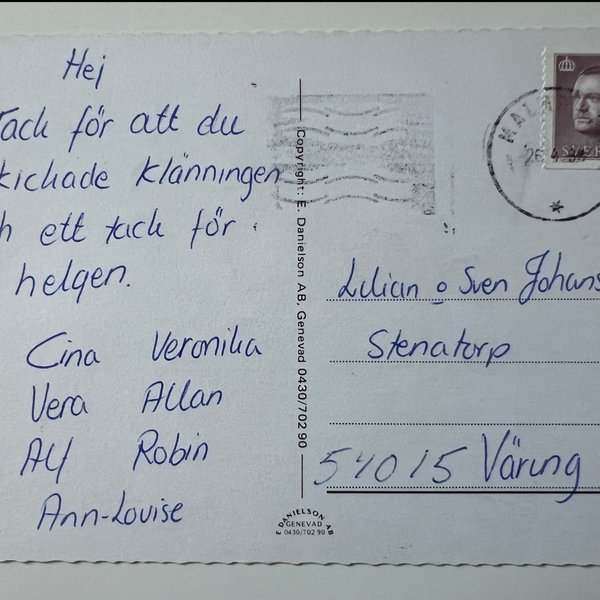 Hej
Tack för att du
skickade klänningen
h ett tack för
helgen.
Cina Veronika
Vera Allan
Alf Robin
Ann-Louise
Copyright: E. Danielson AB, Genevad 0430/702 90
E DANIELSON AB
GENEVAD
0430/702 90
MAL
SVER
Lilian o Sven Johans
Stenatorp
54015 Väring